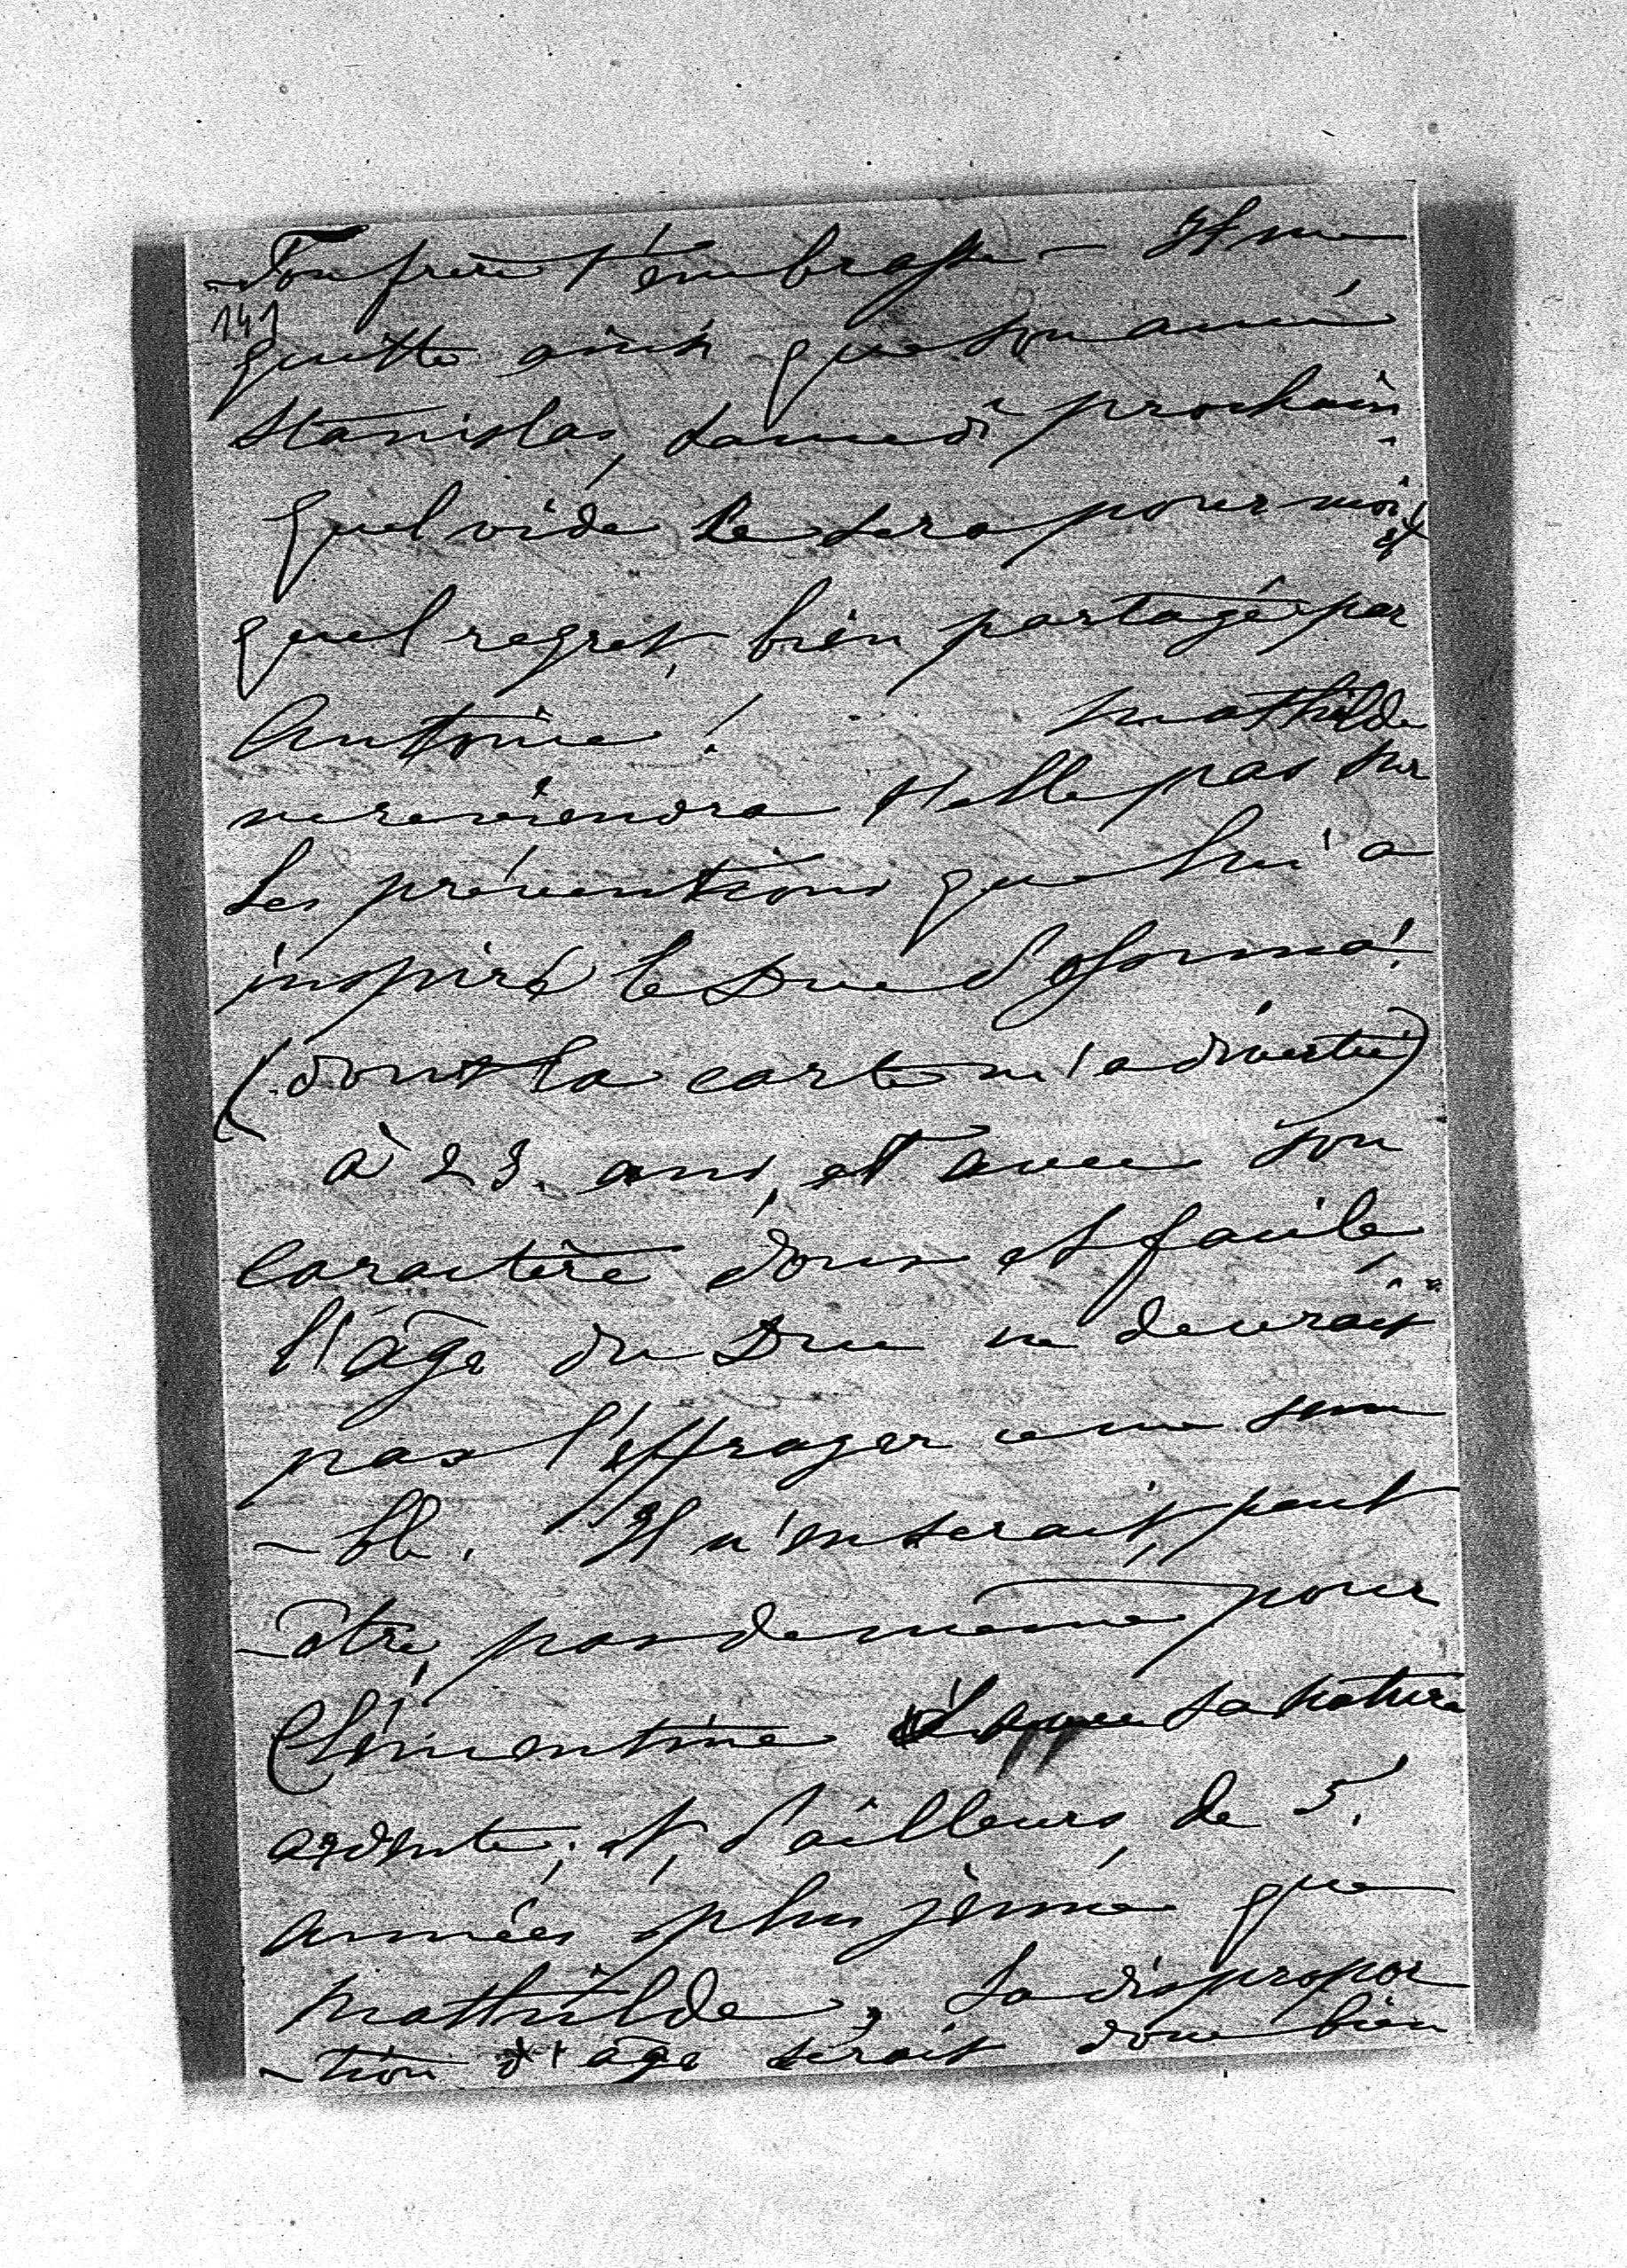 Ton frère t'embrasse — Il me
141
quitte ainsi que son ami
Stanislas, Samedi prochain.
quel vide ce sera pour moi, et
quel regret, bien partagé par
Antoine ! Mathilde
ne reviendra t'elle pas sur
les préventions que lui a
inspiré le Duc d'Ossuna !
(dont la carte m'a divertie)
à 23. ans, et avec son
caractère doux et facile,
l'âge du Duc ne devrait
pas l'effrayer ce me sem
-ble. Il n'en serait, peut
-être, pas de même pour
Clémentine sa nature
ardente ; et, d'ailleurs, de 5.
années plus jeune que
Mathilde, la dispropor
-tion d'âge serait donc bien